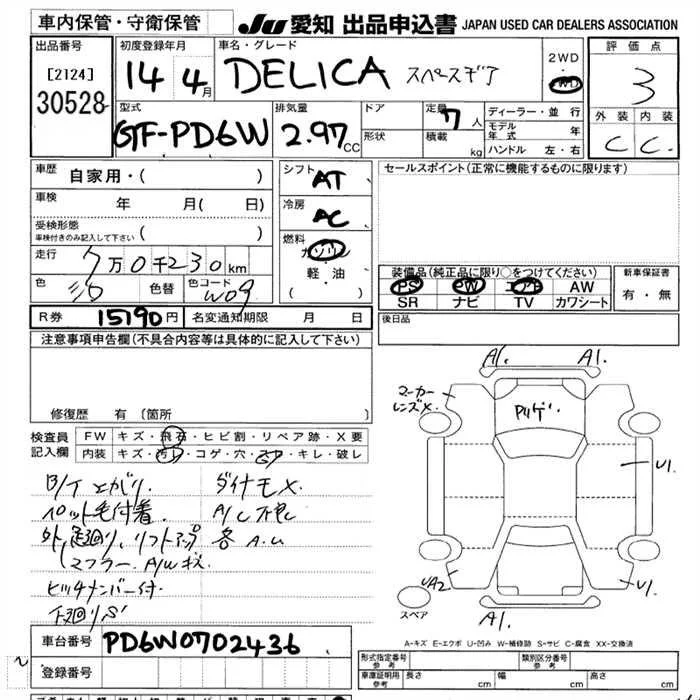 車内保管・守衛保管
JU 愛知 出品申込書 JAPAN USED CAR DEALERS ASSOCIATION
出品番号
[2124]
30528
初度登録年月
14 4月
車名・グレード
DELICA スペースギア
2WD
WD
評価点
3
外装 内装
C C
型式
GF-PD6W
排気量
2.97CC
ドア
形状
定員 7人
積載 kg
ディーラー・並行
モデル年式 年
ハンドル 左・右
車歴
自家用・( )
車検 年 月( 日)
受検形態
車検付きのみ記入して下さい ( )
走行
7万0千230km
色 シロ 色替 色コード W09
シフト AT
冷房 AC
燃料
ガソリン
軽・油
( )
セールスポイント(正常に機能するものに限ります)
装備品(純正品に限り○をつけてください)
PS PW エアB AW
SR ナビ TV カワシート
新車保証書
有・無
R券 15190円 名変通知期限 月 日
後日品
注意事項申告欄(不具合内容等は具体的に記入して下さい)
修復歴 有 〔箇所
検査員記入欄
FW キズ・飛石・ヒビ割・リペア跡・X要
内装 キズ・汚れ・コゲ・穴・・キレ・破レ
ダイナモX
ペット毛付着 A/C不良
外、足廻り、リフトアップ 各A.U
マフラー. A/W
ヒッチナンバー付
下廻りS
A1. A1.
マーカー
レンズX.
U1.
UA2 U1.
スペア
A1.
A-キズ E-エクボ U-凹み W-補修跡 S-サビ C-腐食 XX-交換済
車台番号 PD6W0702436
登録番号
形式指定番号 参考
類別区分番号 参考
車庫証明用 参考 長さ cm 幅 cm 高さ cm